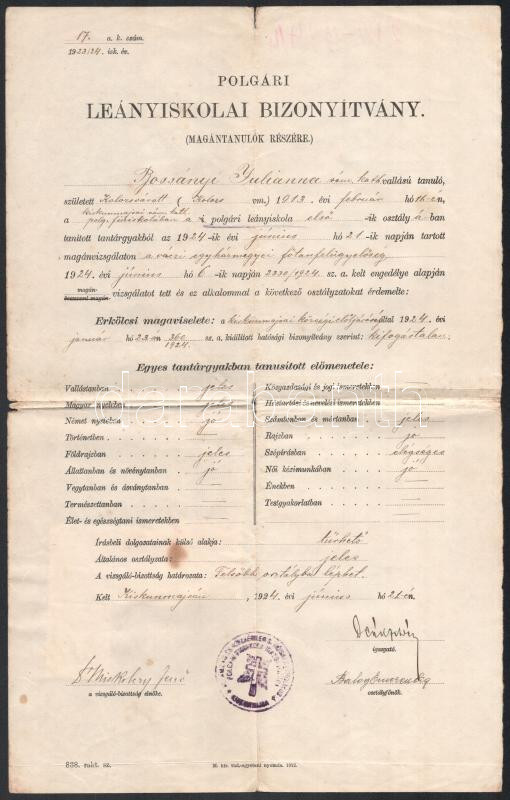 17. a. k. szám.
1923/24. isk. év.
POLGÁRI
LEÁNYISKOLAI BIZONYÍTVÁNY.
(MAGÁNTANULÓK RÉSZÉRE.)
Bossányi Julianna róm. kath. vallású tanuló,
született Kolozsvárott ( Kolozs vm.) 1913. évi február hó 16-án,
a kiskunmajsai róm. kath.
polg. fiúiskolában a polgári leányiskola első -ik osztályában
tanított tantárgyakból az 1924-ik évi június hó 21-ik napján tartott
magánvizsgálaton a váczi egyházmegyei főtanfelügyelőség
1924. évi június hó 6-ik napján 2330/1924. sz. a. kelt engedélye alapján
magán-
vizsgálatot tett és ez alkalommal a következő osztályzatokat érdemelte:
Erkölcsi magaviselete: a kiskunmajsai községi elöljáróság által 1924. évi
január hó 23-án 360/1924. sz. a. kiállított hatósági bizonyítvány szerint: kifogástalan.
Egyes tantárgyakban tanusított előmenetele:
Vallástanban jeles
Magyar nyelvben jeles
Német nyelvben jó
Történetben —
Földrajzban jeles
Állattanban és növénytanban jó
Vegytanban és ásványtanban —
Természettanban —
Élet- és egészségtani ismeretekben
Közgazdasági és jogi ismeretekben —
Háztartási és nevelési ismeretekben —
Számtanban és mértanban jeles
Rajzban jó
Szépírásban elégséges
Női kézimunkában jó
Énekben —
Testgyakorlatban —
Írásbeli dolgozatainak külső alakja: tűrhető
Általános osztályzata: jeles
A vizsgáló-bizottság határozata: Felsőbb osztályba léphet.
Kelt Kiskunmajsán, 1924. évi június hó 21-én.
igazgató.
Dr Miskolczy Jenő
a vizsgáló-bizottság elnöke.
osztályfőnök.
838. rakt. sz.
M. kir. tud.-egyetemi nyomda. 1922.
darabanth